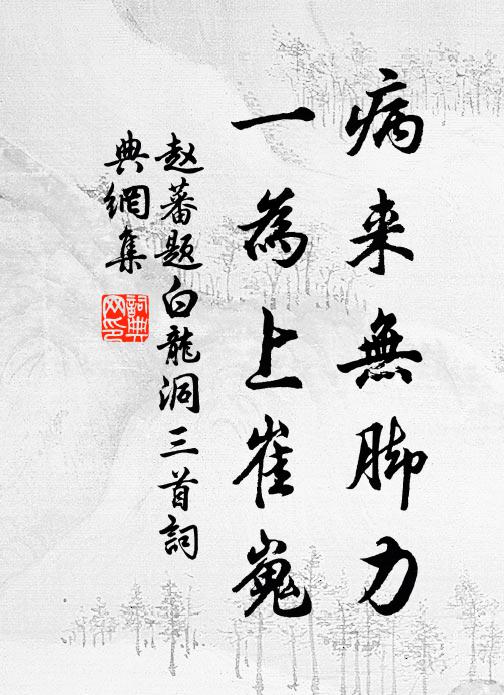 病来無脚力
一為上崔嵬
赵蕃题白龍洞三首詞
典網集
詞典
网印